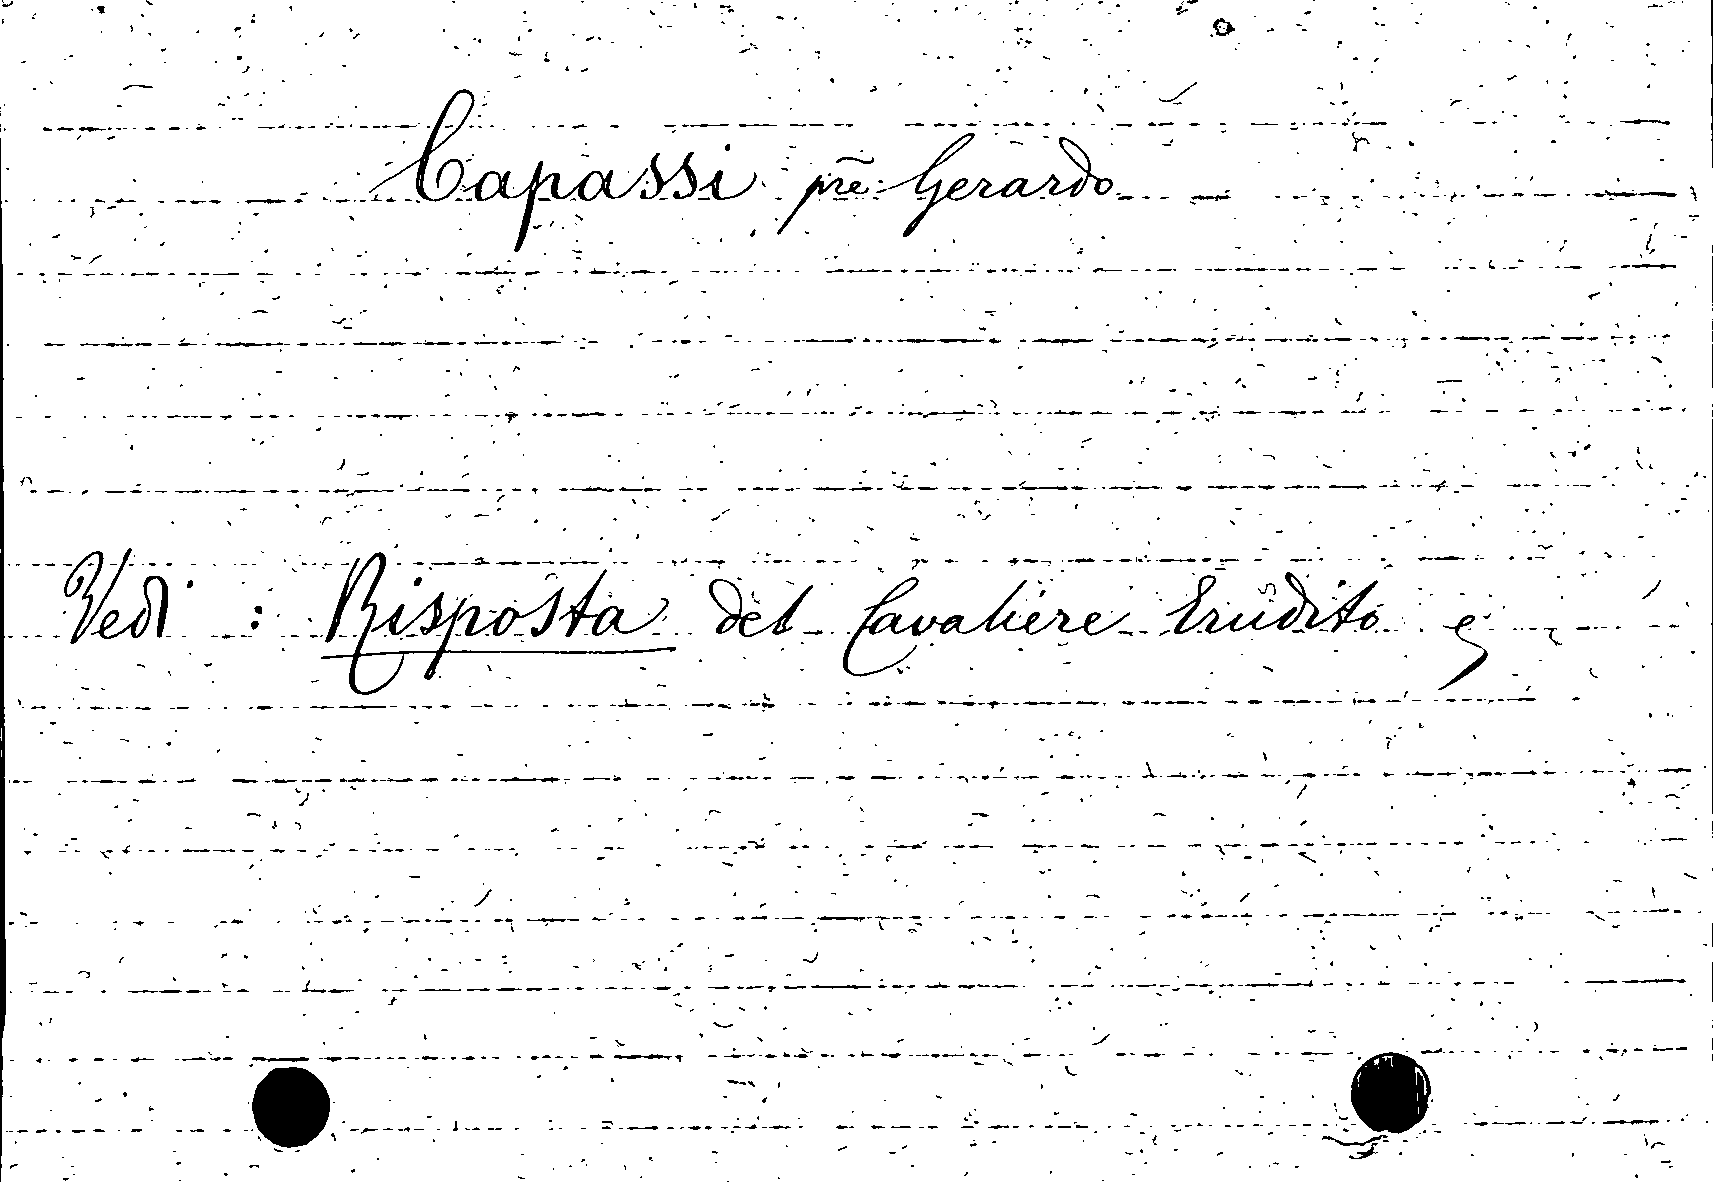 Capassi prẽ: Gerardo
Vedi : Risposta del Cavaliere Erudito